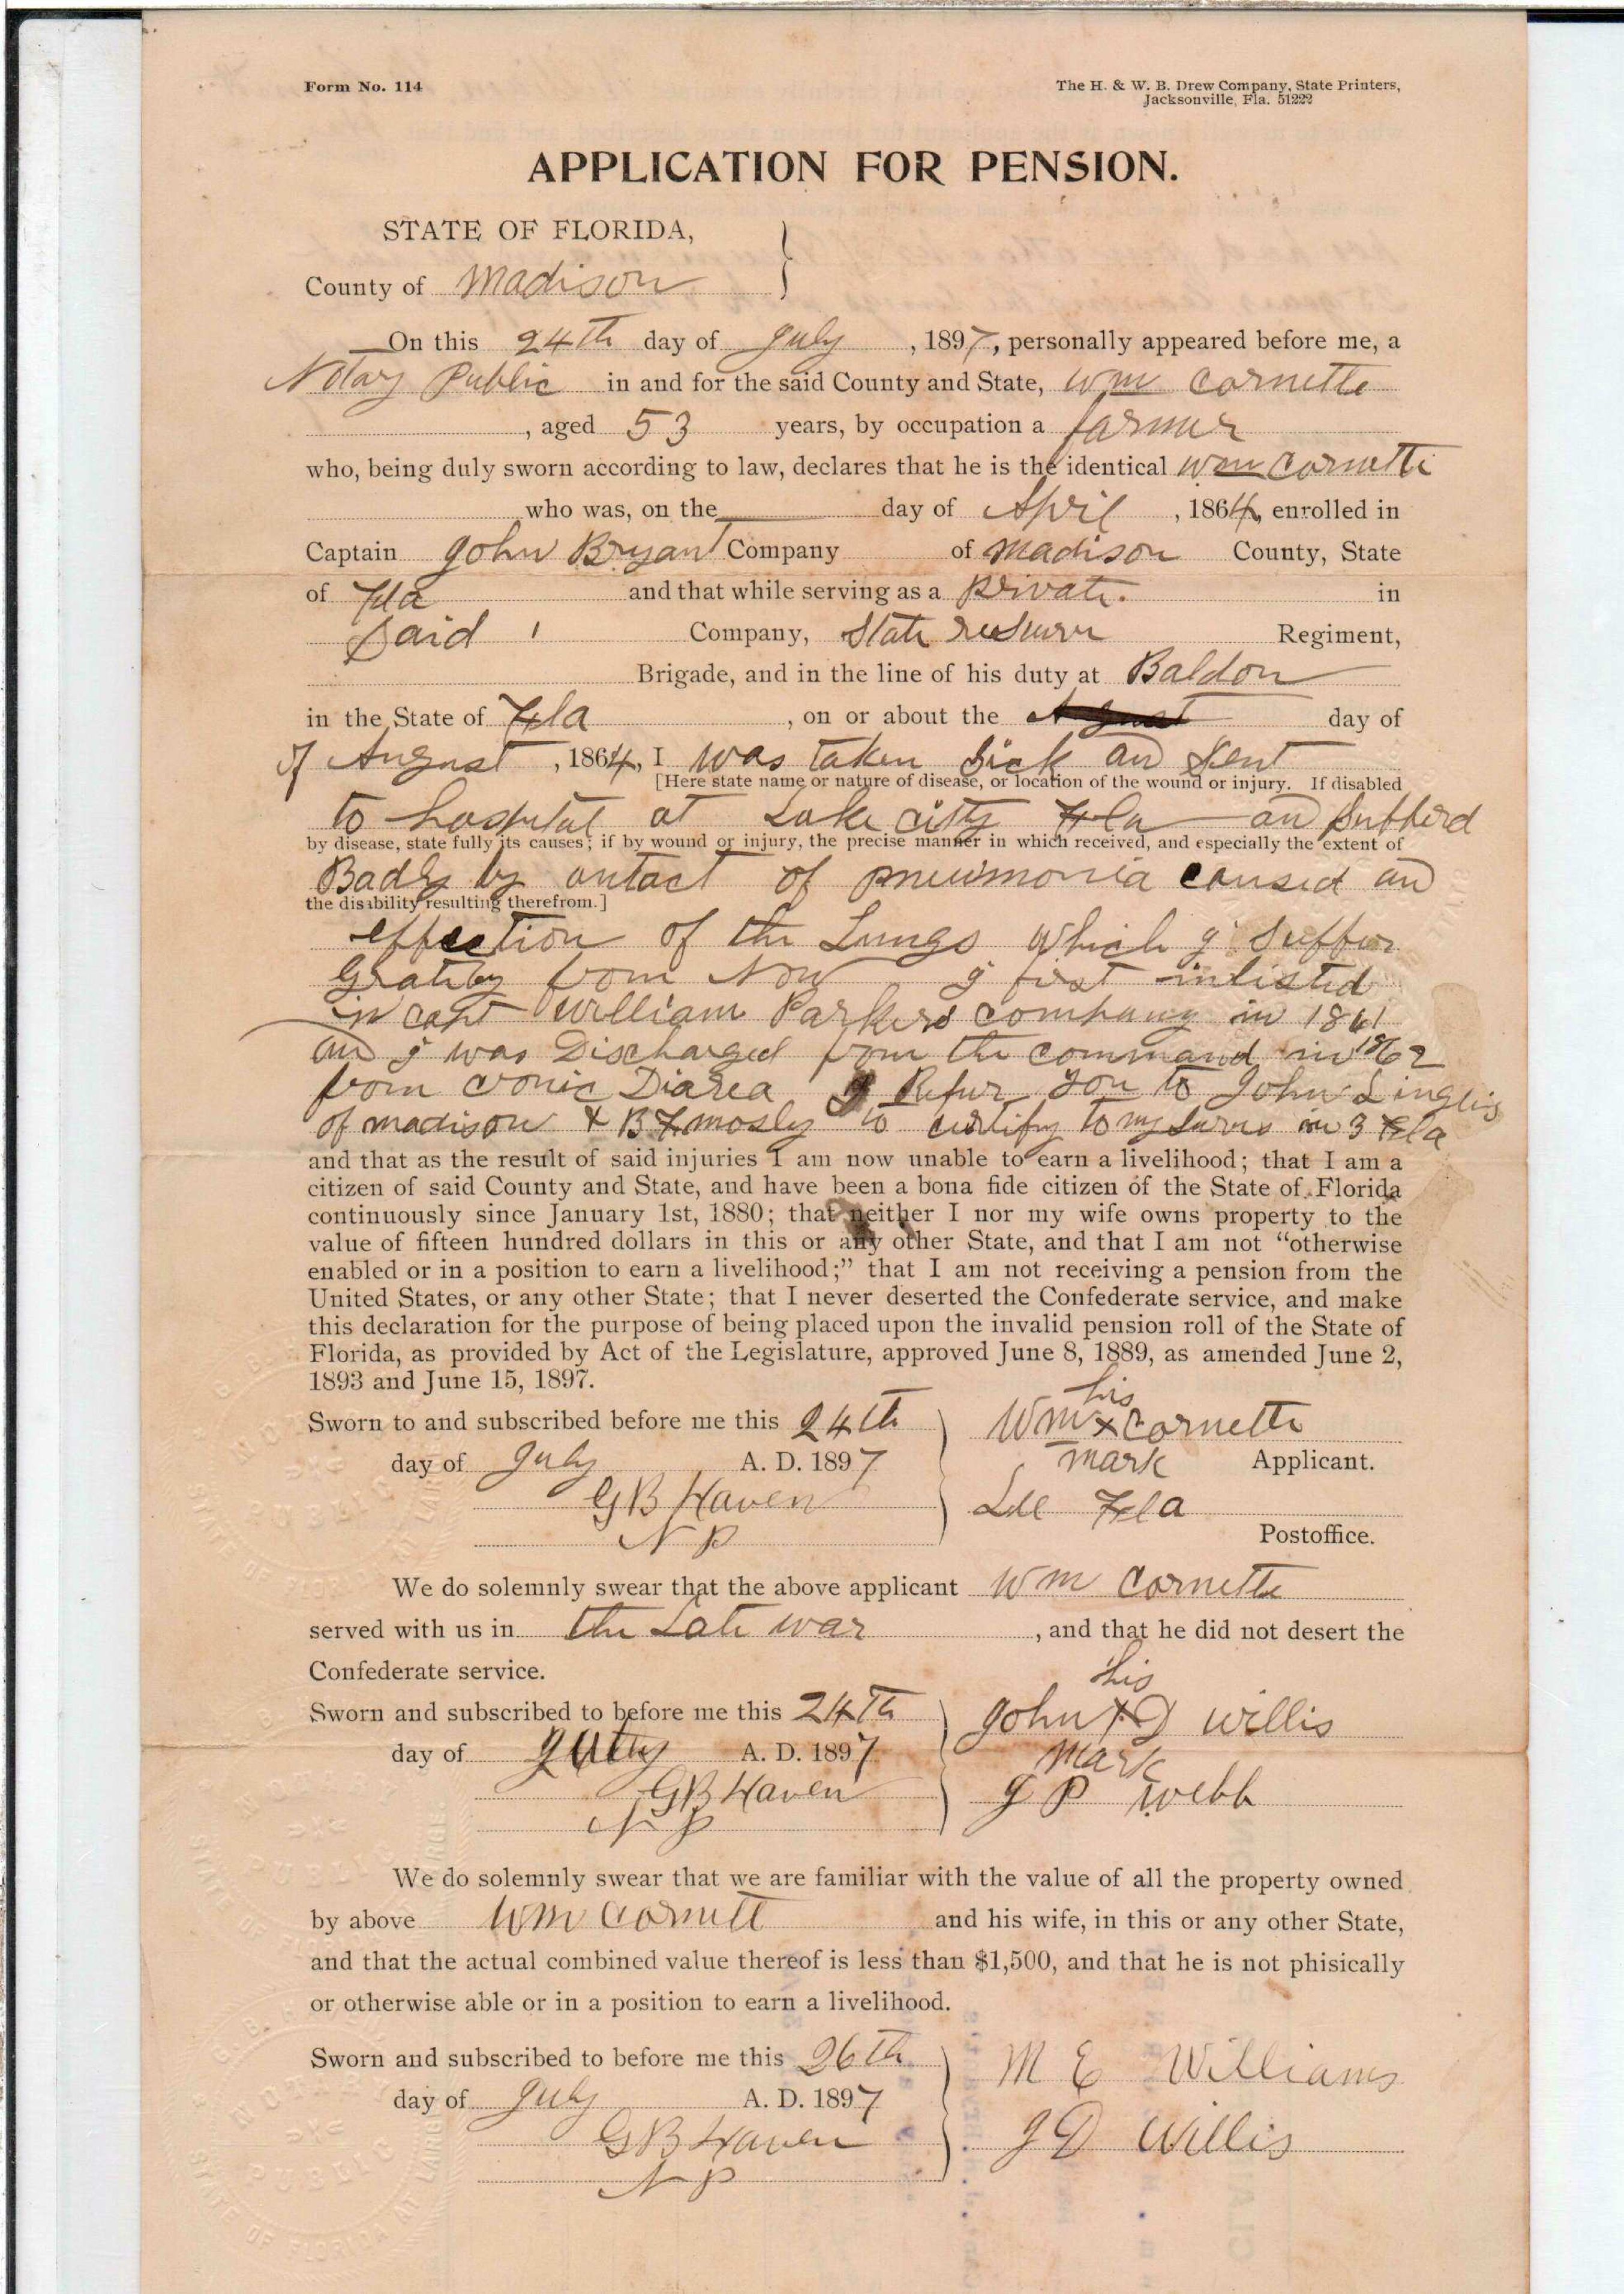 Form No. 114
The H. & W. B. Drew Company, State Printers,
Jacksonville, Fla. 51222
APPLICATION FOR PENSION.
STATE OF FLORIDA,
County of Madison
On this 24th day of July, 1897, personally appeared before me, a
Notary Public in and for the said County and State, Wm Cornette
, aged 53 years, by occupation a farmer
who, being duly sworn according to law, declares that he is the identical Wm Cornette
who was, on the day of April, 1864, enrolled in
Captain John Bryant Company of Madison County, State
of Fla and that while serving as a Private. in
Said Company, State reserve Regiment,
Brigade, and in the line of his duty at Baldon
in the State of Fla, on or about the August day of
of August, 1864, I was taken Sick an Sent
[Here state name or nature of disease, or location of the wound or injury. If disabled
to hospital at Lake city Fla an Sufferd
by disease, state fully its causes; if by wound or injury, the precise manner in which received, and especially the extent of
Badly by antact of pneuimonia caused an
the disability resulting therefrom.]
effection of the Lungs which J Suffer
Grateby from Now J first inlisted
in capt William Parkers company in 1861
an J was Discharged from the command in 1862
from cronic Diarea J Refur you to John Linglis
of madison & B F mosly to curtify to my Survis in 3 Fla
and that as the result of said injuries I am now unable to earn a livelihood; that I am a
citizen of said County and State, and have been a bona fide citizen of the State of Florida
continuously since January 1st, 1880; that neither I nor my wife owns property to the
value of fifteen hundred dollars in this or any other State, and that I am not “otherwise
enabled or in a position to earn a livelihood;” that I am not receiving a pension from the
United States, or any other State; that I never deserted the Confederate service, and make
this declaration for the purpose of being placed upon the invalid pension roll of the State of
Florida, as provided by Act of the Legislature, approved June 8, 1889, as amended June 2,
1893 and June 15, 1897.
his
Sworn to and subscribed before me this 24th Wm x Cornette
day of July A. D. 1897 mark Applicant.
G B Haven Lee Fla
N P Postoffice.
We do solemnly swear that the above applicant Wm Cornette
served with us in the Late war, and that he did not desert the
Confederate service.
his
Sworn and subscribed to before me this 24th John x D Willis
day of July A. D. 1897 Mark
G B Haven J P Webb
N P
We do solemnly swear that we are familiar with the value of all the property owned
by above Wm Cornett and his wife, in this or any other State,
and that the actual combined value thereof is less than $1,500, and that he is not phisically
or otherwise able or in a position to earn a livelihood.
Sworn and subscribed to before me this 26th M E Williams
day of July A. D. 1897
G B Haven J D Willis
N P